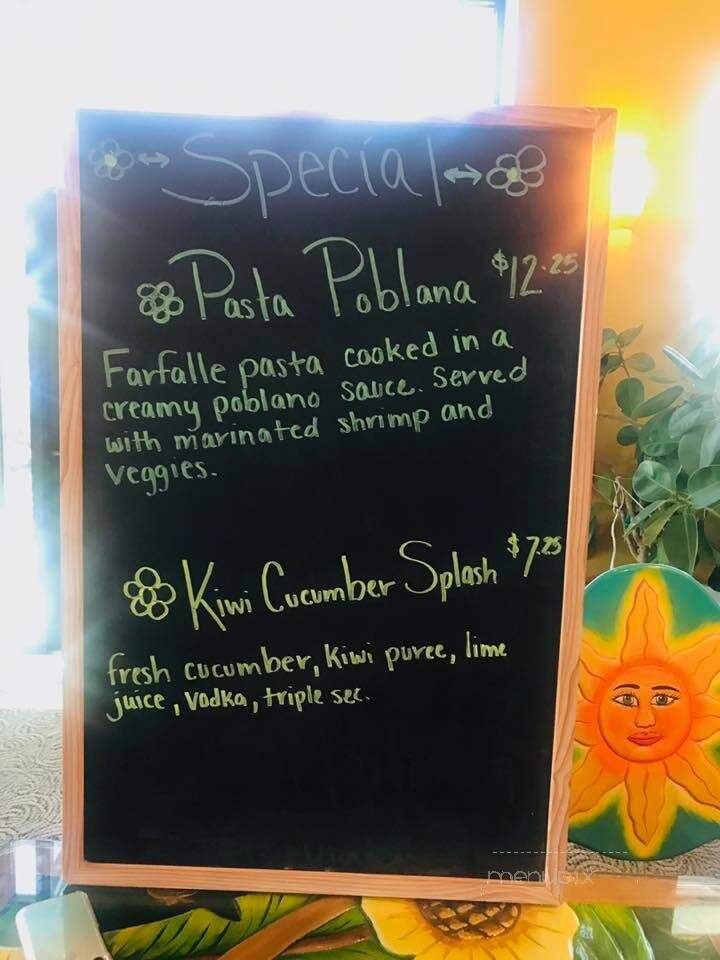 Special
Pasta Poblana $12.25
Farfalle pasta cooked in a
creamy poblano sauce. Served
with marinated shrimp and
veggies.
Kiwi Cucumber Splash $7.25
fresh cucumber, Kiwi puree, lime
juice, Vodka, triple sec.
menupix